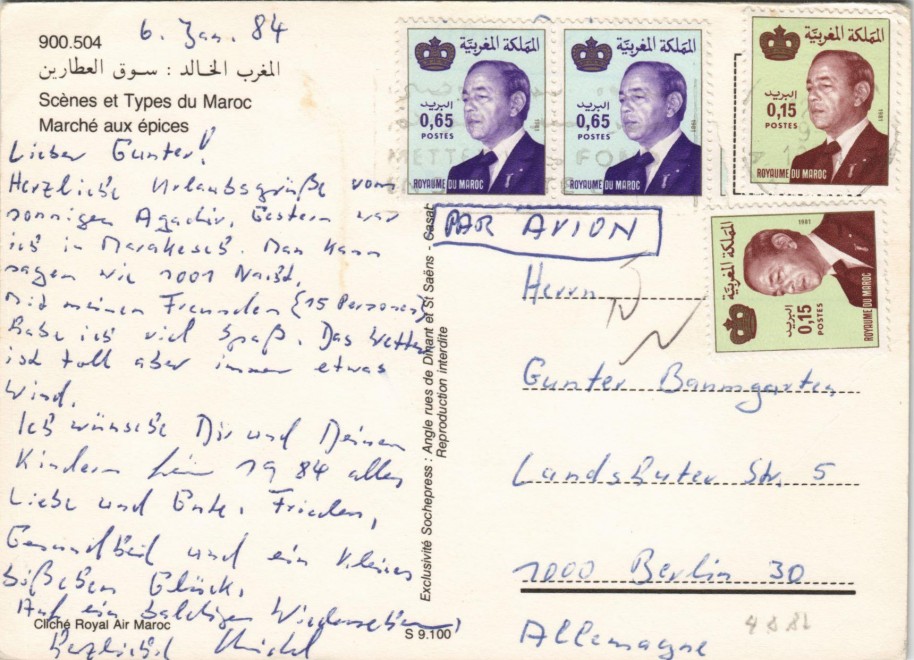 900.504
6. Jan. 84
المغرب الخالد : سوق العطارين
Scènes et Types du Maroc
Marché aux épices
Lieber Gunter!
Herzliche Urlaubsgrüße vom
sonnigen Agadir. Gestern war
ich in Marakesch. Man kann
sagen wie 1001 Nacht.
Mit meinen Freunden (15 Personen)
habe ich viel Spaß. Das Wetter
ist toll aber immer etwas
Wind.
Ich wünsche Dir und Deinen
Kindern für 1984 alles
Liebe und Gute, Frieden,
Gesundheit und ein kleines
bißchen Glück.
Auf ein baldiges Wiedersehen,
Herzlichst
Cliché Royal Air Maroc
S 9.100
Exclusivité Sochepress : Angle rues de Dinant et St Saëns - Casa
Reproduction interdite
المملكة المغربية
البريد
0,65
POSTES
1981
ROYAUME DU MAROC
المملكة المغربية
البريد
0,65
POSTES
1981
ROYAUME DU MAROC
المملكة المغربية
البريد
0,15
POSTES
1981
ROYAUME DU MAROC
المملكة المغربية
البريد
0,15
POSTES
1981
ROYAUME DU MAROC
PAR AVION
Herrn
Gunter Baumgarten
Landshuter Str. 5
1000 Berlin 30
Allemagne